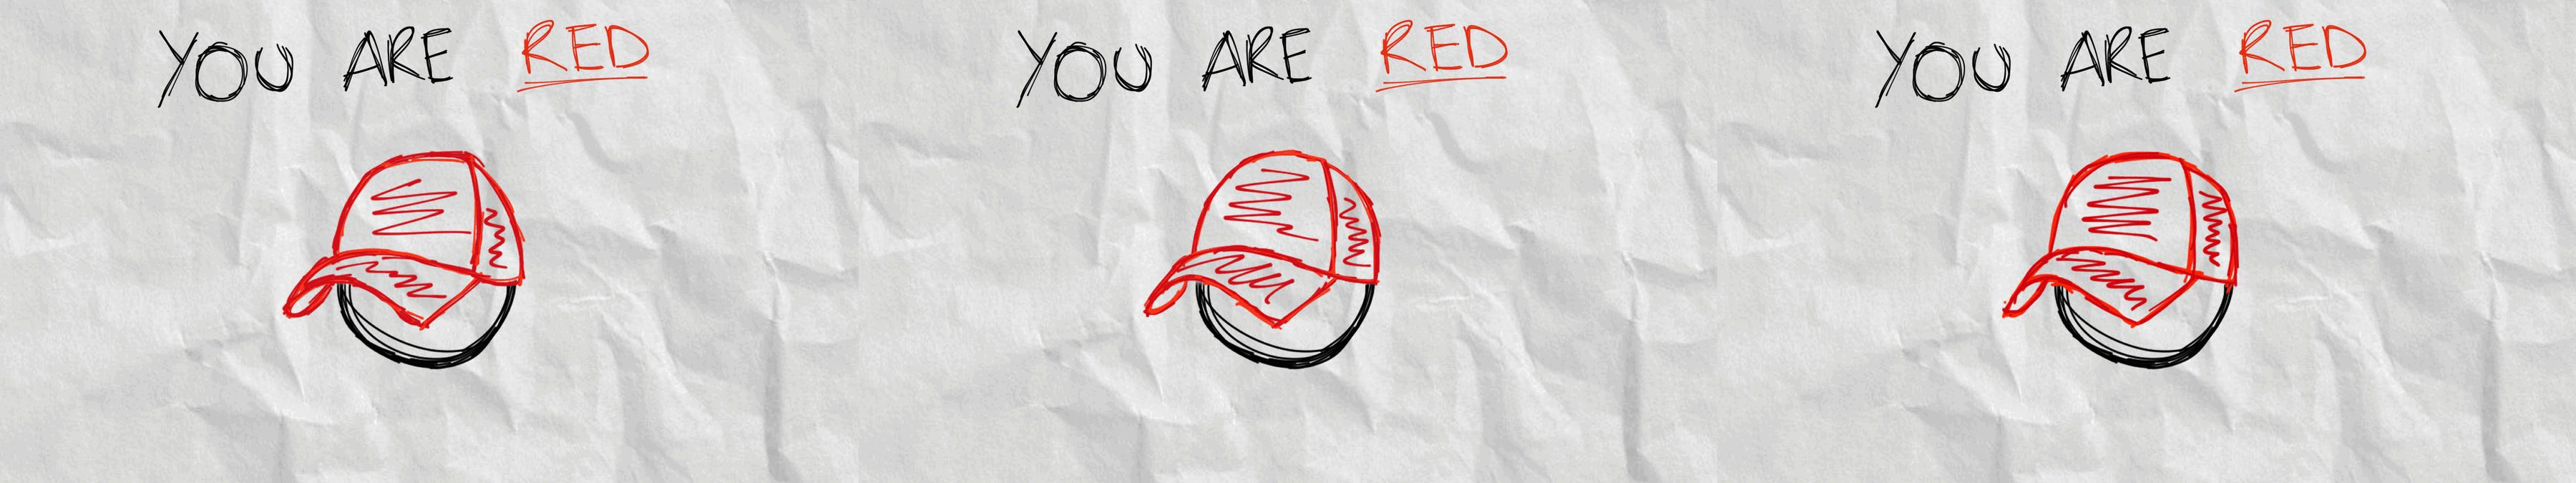 YOU ARE RED YOU ARE RED YOU ARE RED